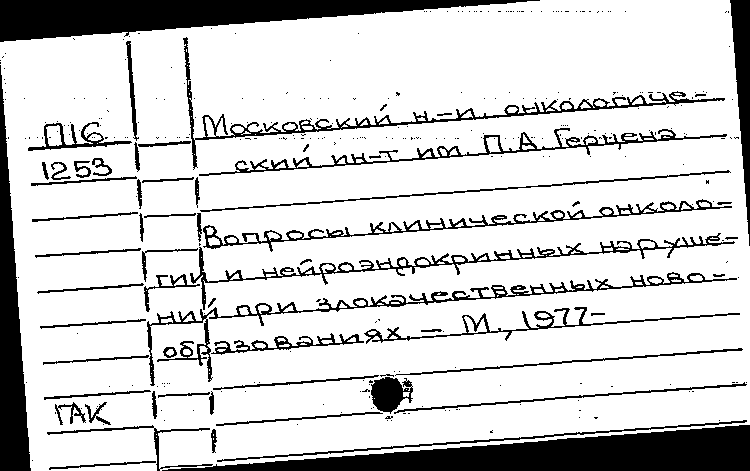 П16 Московский н.-и. онкологиче-
1253 ский ин-т им. П.А. Герцена.
Вопросы клинической онколо-
гии и нейроэндокринных наруше-
ний при злокачественных ново-
образованиях. – М., 1977-
ГАК